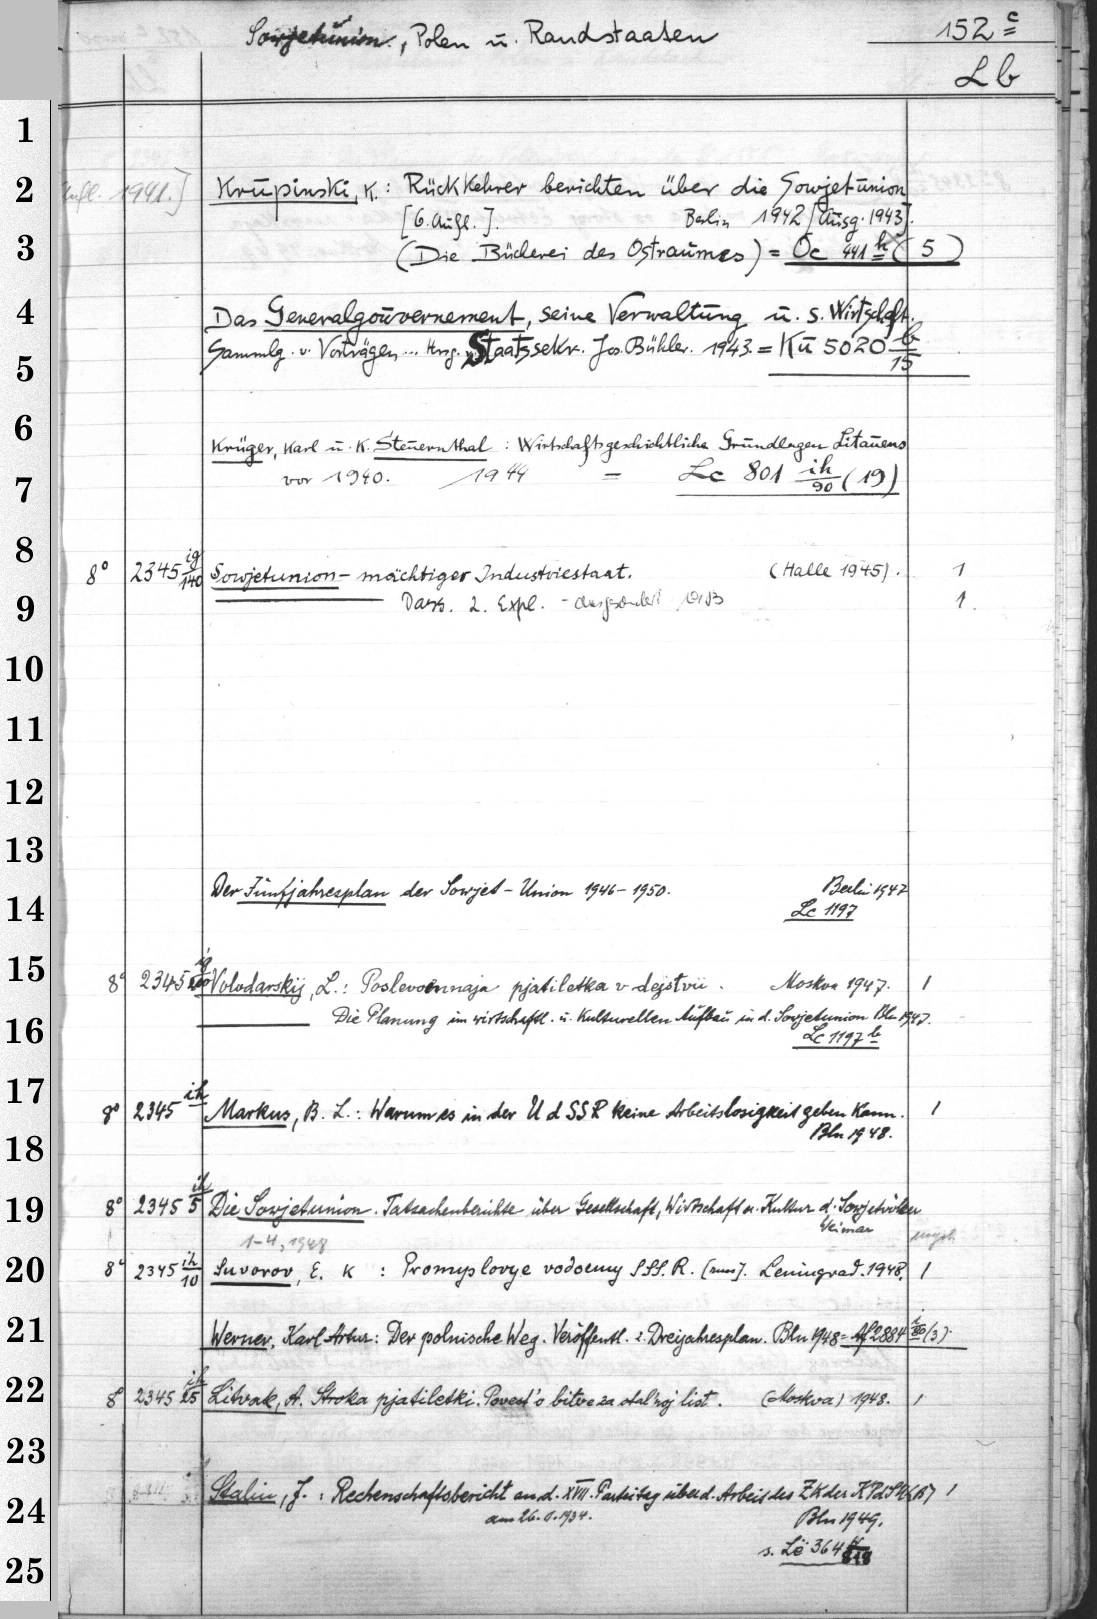 Sowjetunion, Polen u. Randstaaten 152 c
Lb
1
2 Aufl. 1941.] Krupinski, K.: Rückkehrer berichten über die Sowjetunion
[6. Aufl.]. Berlin 1942 [Ausg. 1943].
3 (Die Bücherei des Ostraumes) = Oc 441 h (5)
4 Das Generalgouvernement, seine Verwaltung u. s. Wirtschaft.
5 Sammlg. v. Vorträgen ... Hrsg. v. Staatssekr. Jos. Bühler. 1943. = Ku 5020 b/15
6 Krüger, Karl u. K. Steuernthal : Wirtschaftsgeschichtliche Grundlagen Litauens
7 vor 1940. 1944 = Lc 801 ih/90 (19)
8 8° 2345 ig/140 Sowjetunion - mächtiger Industriestaat. (Halle 1945). 1
9 Dass. 2. Expl. - ausgesondert 1
10
11
12
13
14 Der Fünfjahresplan der Sowjet-Union 1946-1950. Berlin 1947
Lc 1197
15 8° 2345 ig Volodarskij, L.: Poslevoennaja pjatiletka v dejstvii. Moskva 1947. 1
16 Die Planung im wirtschaftl. u. kulturellen Aufbau in d. Sovjetunion Bln 1947.
Lc 1197 b
17 8° 2345 ih Markus, B. L.: Warum es in der UdSSR keine Arbeitslosigkeit geben kann. 1
18 Bln 1948.
19 8° 2345 ih/5 Die Sowjetunion. Tatsachenberichte über Gesellschaft, Wirtschaft u. Kultur d. Sowjetvölker
Weimar
1-4, 1948
20 8° 2345 ih/10 Suvorov, E. K : Promyslovye vodoemy SSS.R. [russ]. Leningrad. 1948. 1
21 Werner, Karl Artur: Der polnische Weg. Veröffentl. z. Dreijahresplan. Bln 1948 = Af 2884 (3).
22 8° 2345 ih/25 Litvak, A. Stroka pjatiletki. Povest' o bitve za stal'noj list. (Moskva) 1948. 1
23
24 Stalin, J. : Rechenschaftsbericht an d. XVII. Parteitag über d. Arbeit des ZK der KPdSU(B) 1
am 26.1.1934. Bln 1949.
25 s. Lö 364